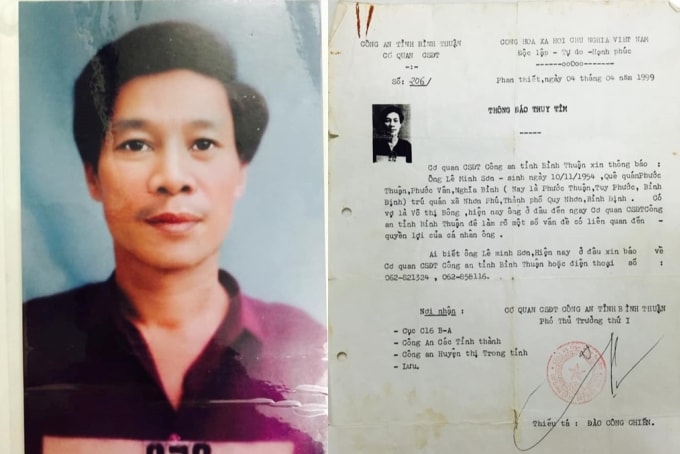 CÔNG AN TỈNH BÌNH THUẬN
CƠ QUAN CSĐT
-:-
Số: 206/
CỘNG HÒA XÃ HỘI CHỦ NGHĨA VIỆT NAM
Độc lập - Tự do - Hạnh phúc
------ooOoo------
Phan thiết,ngày 04 tháng 04 năm 1999
THÔNG BÁO TRUY TÌM
-----
Cơ quan CSĐT Công an tỉnh Bình Thuận xin thông báo :
Ông Lê Minh Sơn - sinh ngày 10/11/1954 ,Quê quánPhước
Thuận,Phước Vân,Nghĩa Bình ( Nay là Phước Thuận,Tuy Phước, Bình
Định) trú quán xã Nhơn Phú,Thành phố Quy Nhơn,Bình Định . Có
vợ là Võ thị Bông ,hiện nay ông ở đâu đến ngay Cơ quan CSĐTCông
an tỉnh Bình Thuận để làm rõ một số vấn đề có liên quan đến -
quyền lợi của cá nhân ông .
Ai biết ông Lê minh Sơn,Hiện nay ở đâu xin báo về
Cơ quan CSĐT Công an tỉnh Bình Thuận hoặc điện thoại số :
062-821324 ,062-858116.
Nơi nhận :
- Cục C16 B-A
- Công An Các Tỉnh thành
- Công an Huyện thị Trong tỉnh
- Lưu.
CƠ QUAN CSĐT CÔNG AN TỈNH BÌNH THUẬN
Phó Thủ Trưởng thứ I
Thiếu tá : ĐÀO CÔNG CHIẾN.